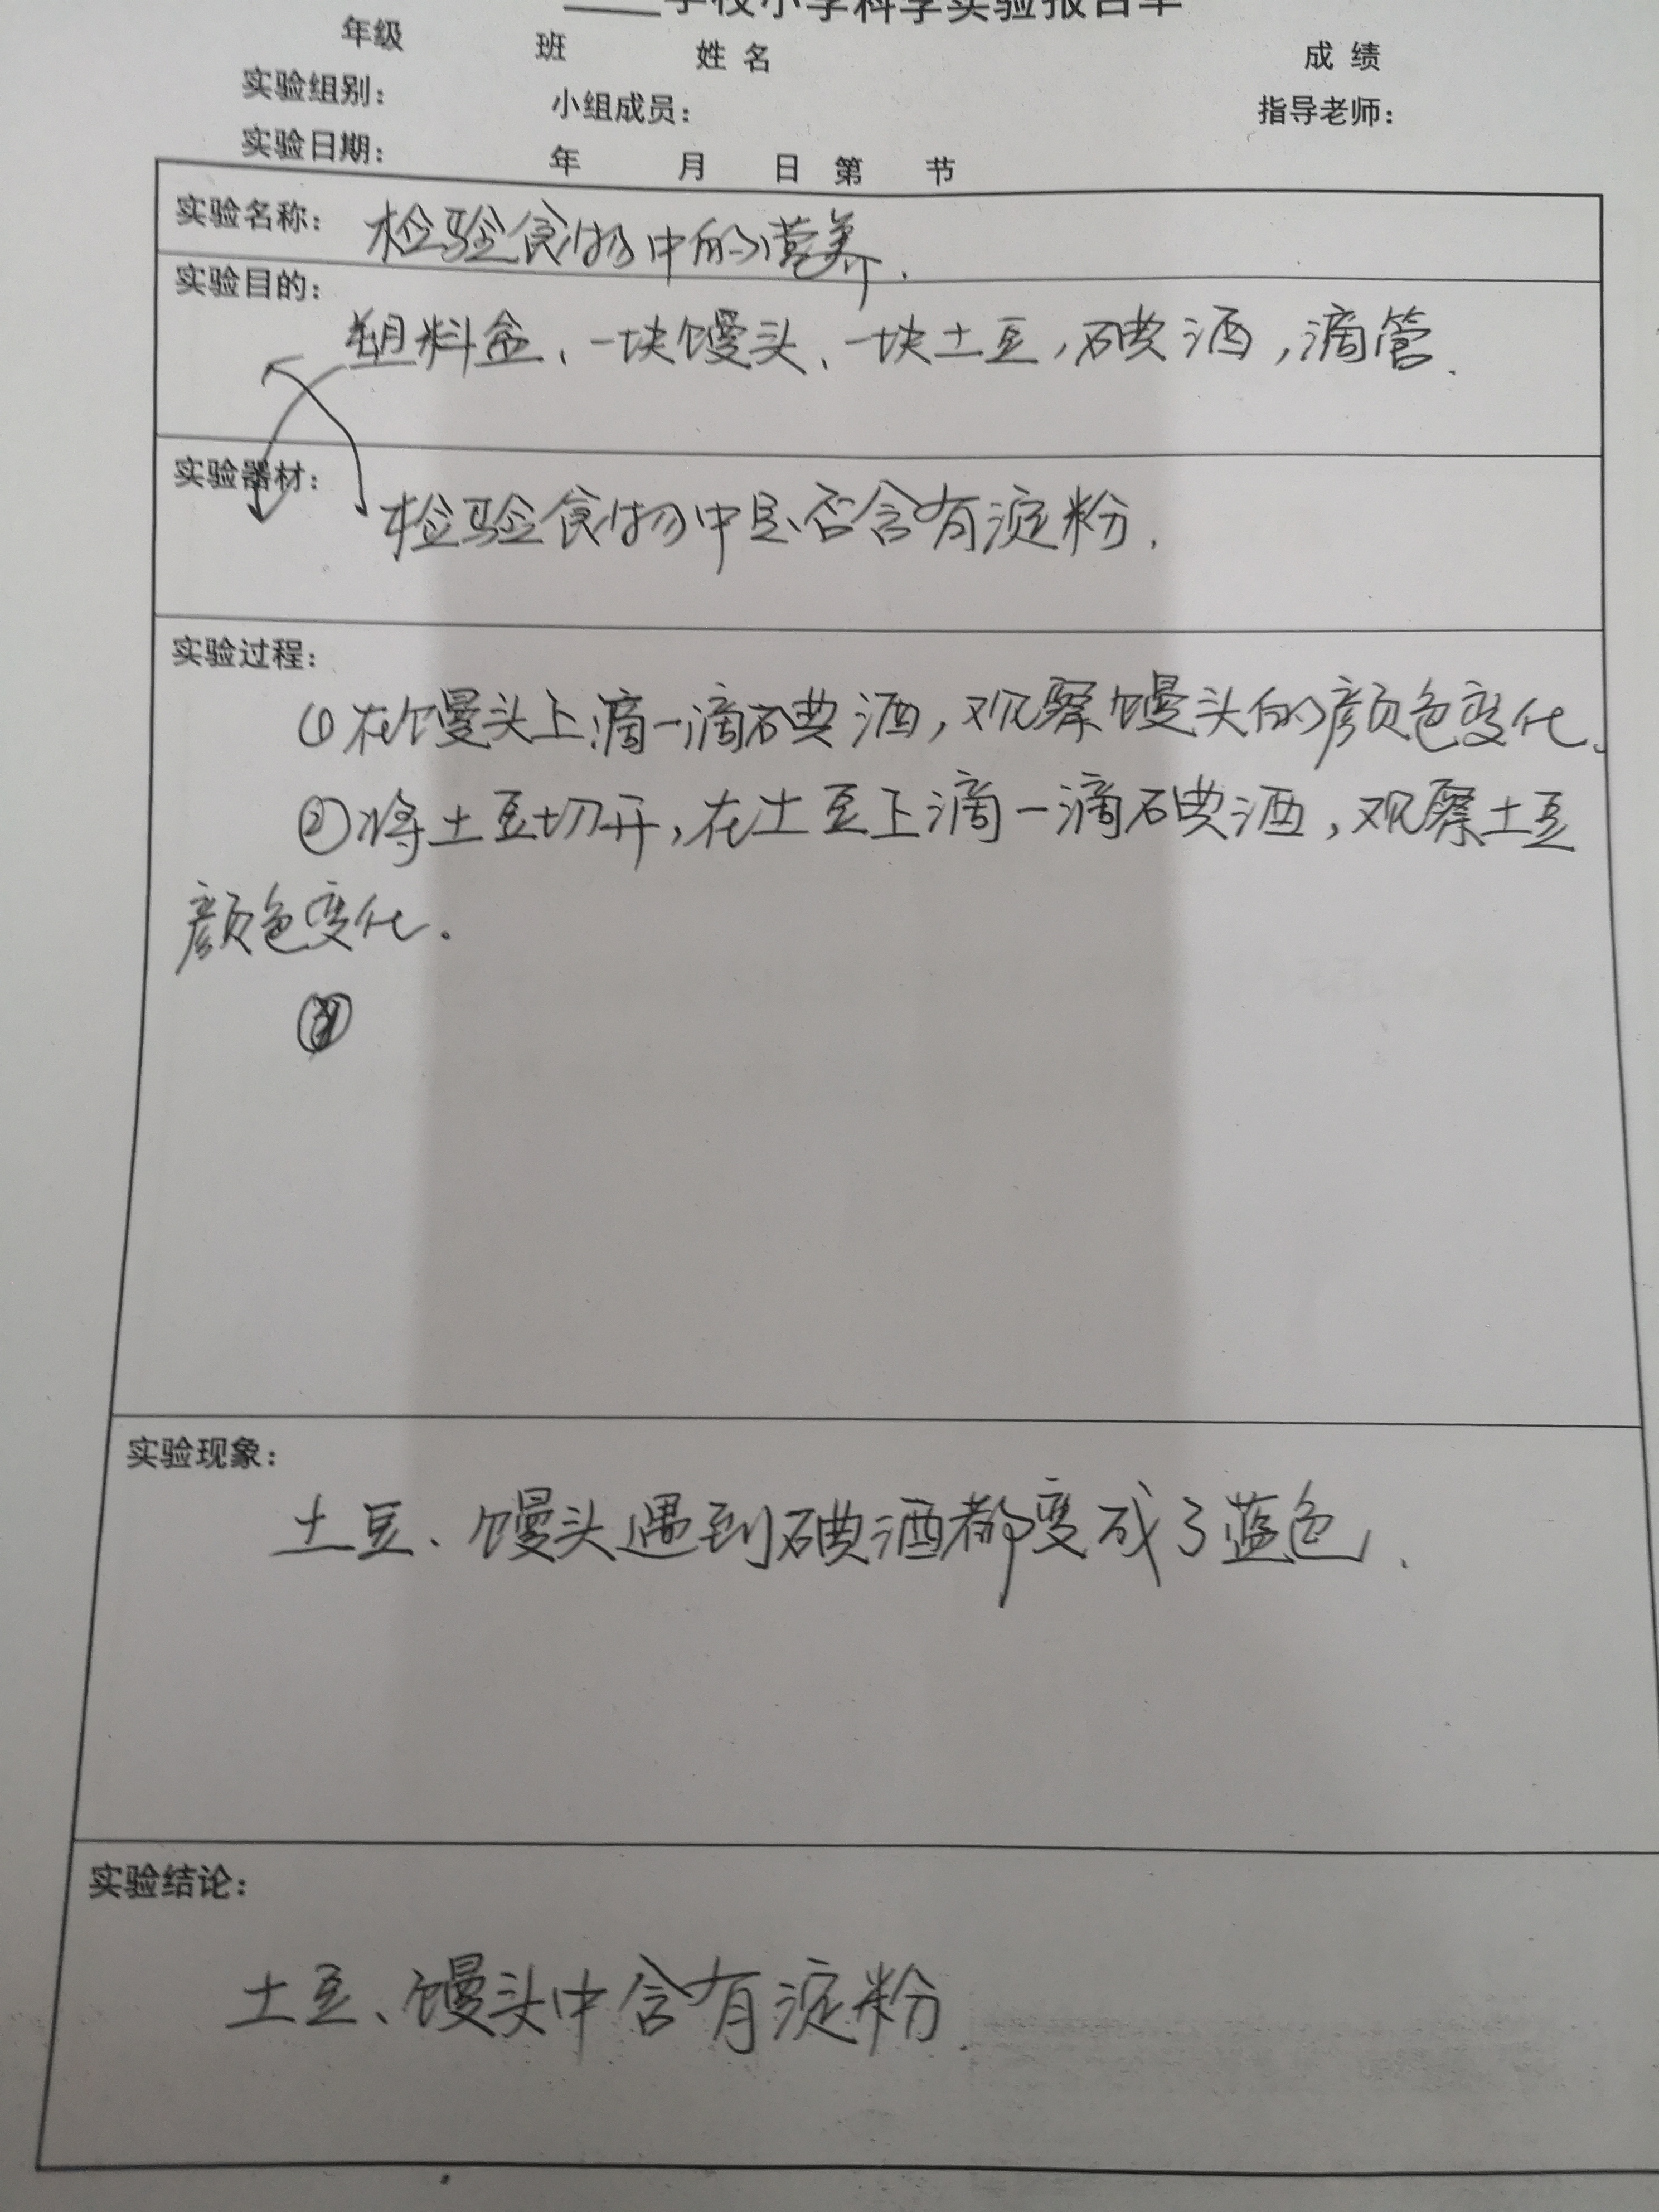 学校小学科学实验报告单
年级 班 姓名 成绩
实验组别： 小组成员： 指导老师：
实验日期： 年 月 日 第 节
实验名称： 检验食物中的营养.
实验目的：
塑料盒、一块馒头、一块土豆,碘酒,滴管.
实验器材：
检验食物中是否含有淀粉.
实验过程：
①在馒头上滴一滴碘酒,观察馒头的颜色变化.
②将土豆切开,在土豆上滴一滴碘酒,观察土豆
颜色变化.
实验现象：
土豆、馒头遇到碘酒都变成了蓝色.
实验结论：
土豆、馒头中含有淀粉.